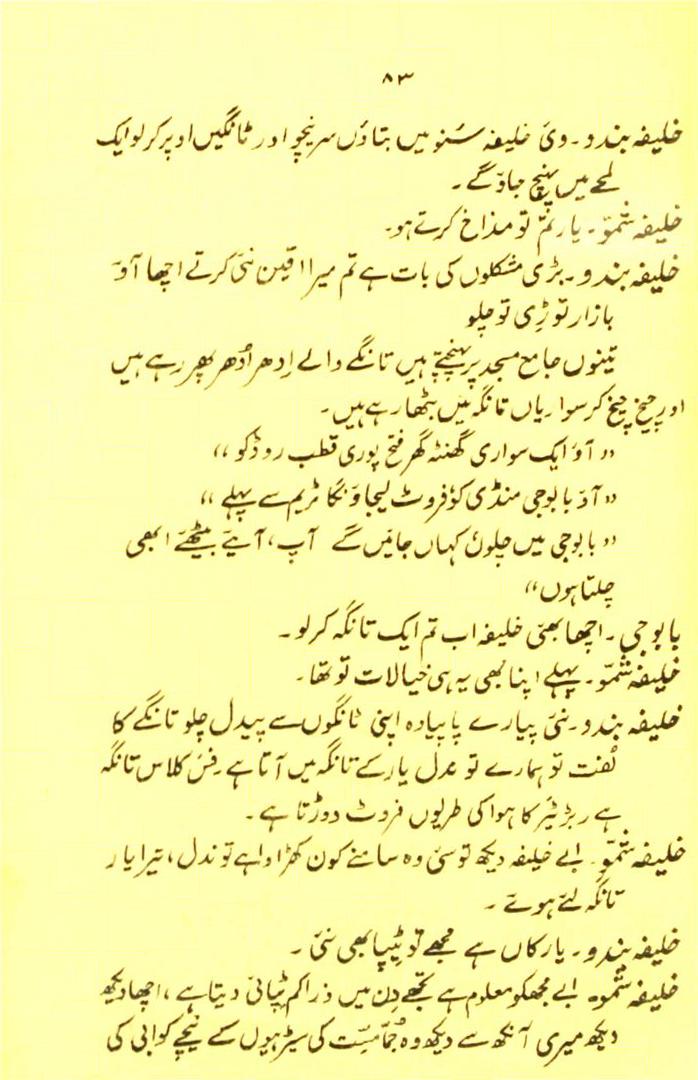 ۸۳
خلیفہ بندو۔ وئ خلیفہ سُنو میں بتاؤں سر نیچو اور ٹانگیں اوپر کر لو ایک
لمحے میں پہنچ جاؤ گے۔
خلیفہ شمّو۔ یار تم تو مذاخ کرتے ہو۔
خلیفہ بندو۔ بڑی مشکلوں کی بات ہے تم میرا اقین نئی کرتے اچھا آؤ
بازار توڑِی تو چلو
تینوں جامع مسجد پر پہنچتے ہیں تانگے والے اِدھر اُدھر پھر رہے ہیں
اور چیخ چیخ کر سواریاں تانگہ میں بٹھا رہے ہیں۔
”آؤ ایک سواری گھنٹہ گھر فتح پوری قطب روڈ کو“
”آؤ بابوجی منڈی کو فروٹ لیجاؤنگا ٹریم سے پہلے“
”بابوجی میں چلوں کہاں جائیں گے آپ، آئیے بیٹھئے ابھی
چلتا ہوں“
بابوجی۔ اچھا بھئی خلیفہ اب تم ایک تانگہ کرلو۔
خلیفہ شمّو۔ پہلے اپنا بھی یہ ہی خیالات تو تھا۔
خلیفہ بندو۔ نئی پیارے پاپیادہ اپنی ٹانگوں سے پیدل چلو تانگے کا
لُفت تو ہمارے تو عدل یار کے تانگہ میں آتا ہے فسٹ کلاس تانگہ
ہے ربڑ ٹیر کا ہوا کی طریوں فروٹ دوڑتا ہے۔
خلیفہ شمّو۔ ابے خلیفہ دیکھ تو سئی وہ سامنے کون کھڑا وا ہے تو ندل، تیرا یار
تانگہ لئے ہوئے۔
خلیفہ بندو۔ یار کاں ہے مجھے تو ٹِیپا بھی نئی۔
خلیفہ شمّو۔ ابے مجھکو معلوم ہے تجھے دِن میں ذرا کم ٹپائی دیتا ہے، اچھا دیکھ
دیکھ میری آنکھ سے دیکھ وہ جُمّا مسِّت کی سیڑہیوں کے نیچے کوابی کی